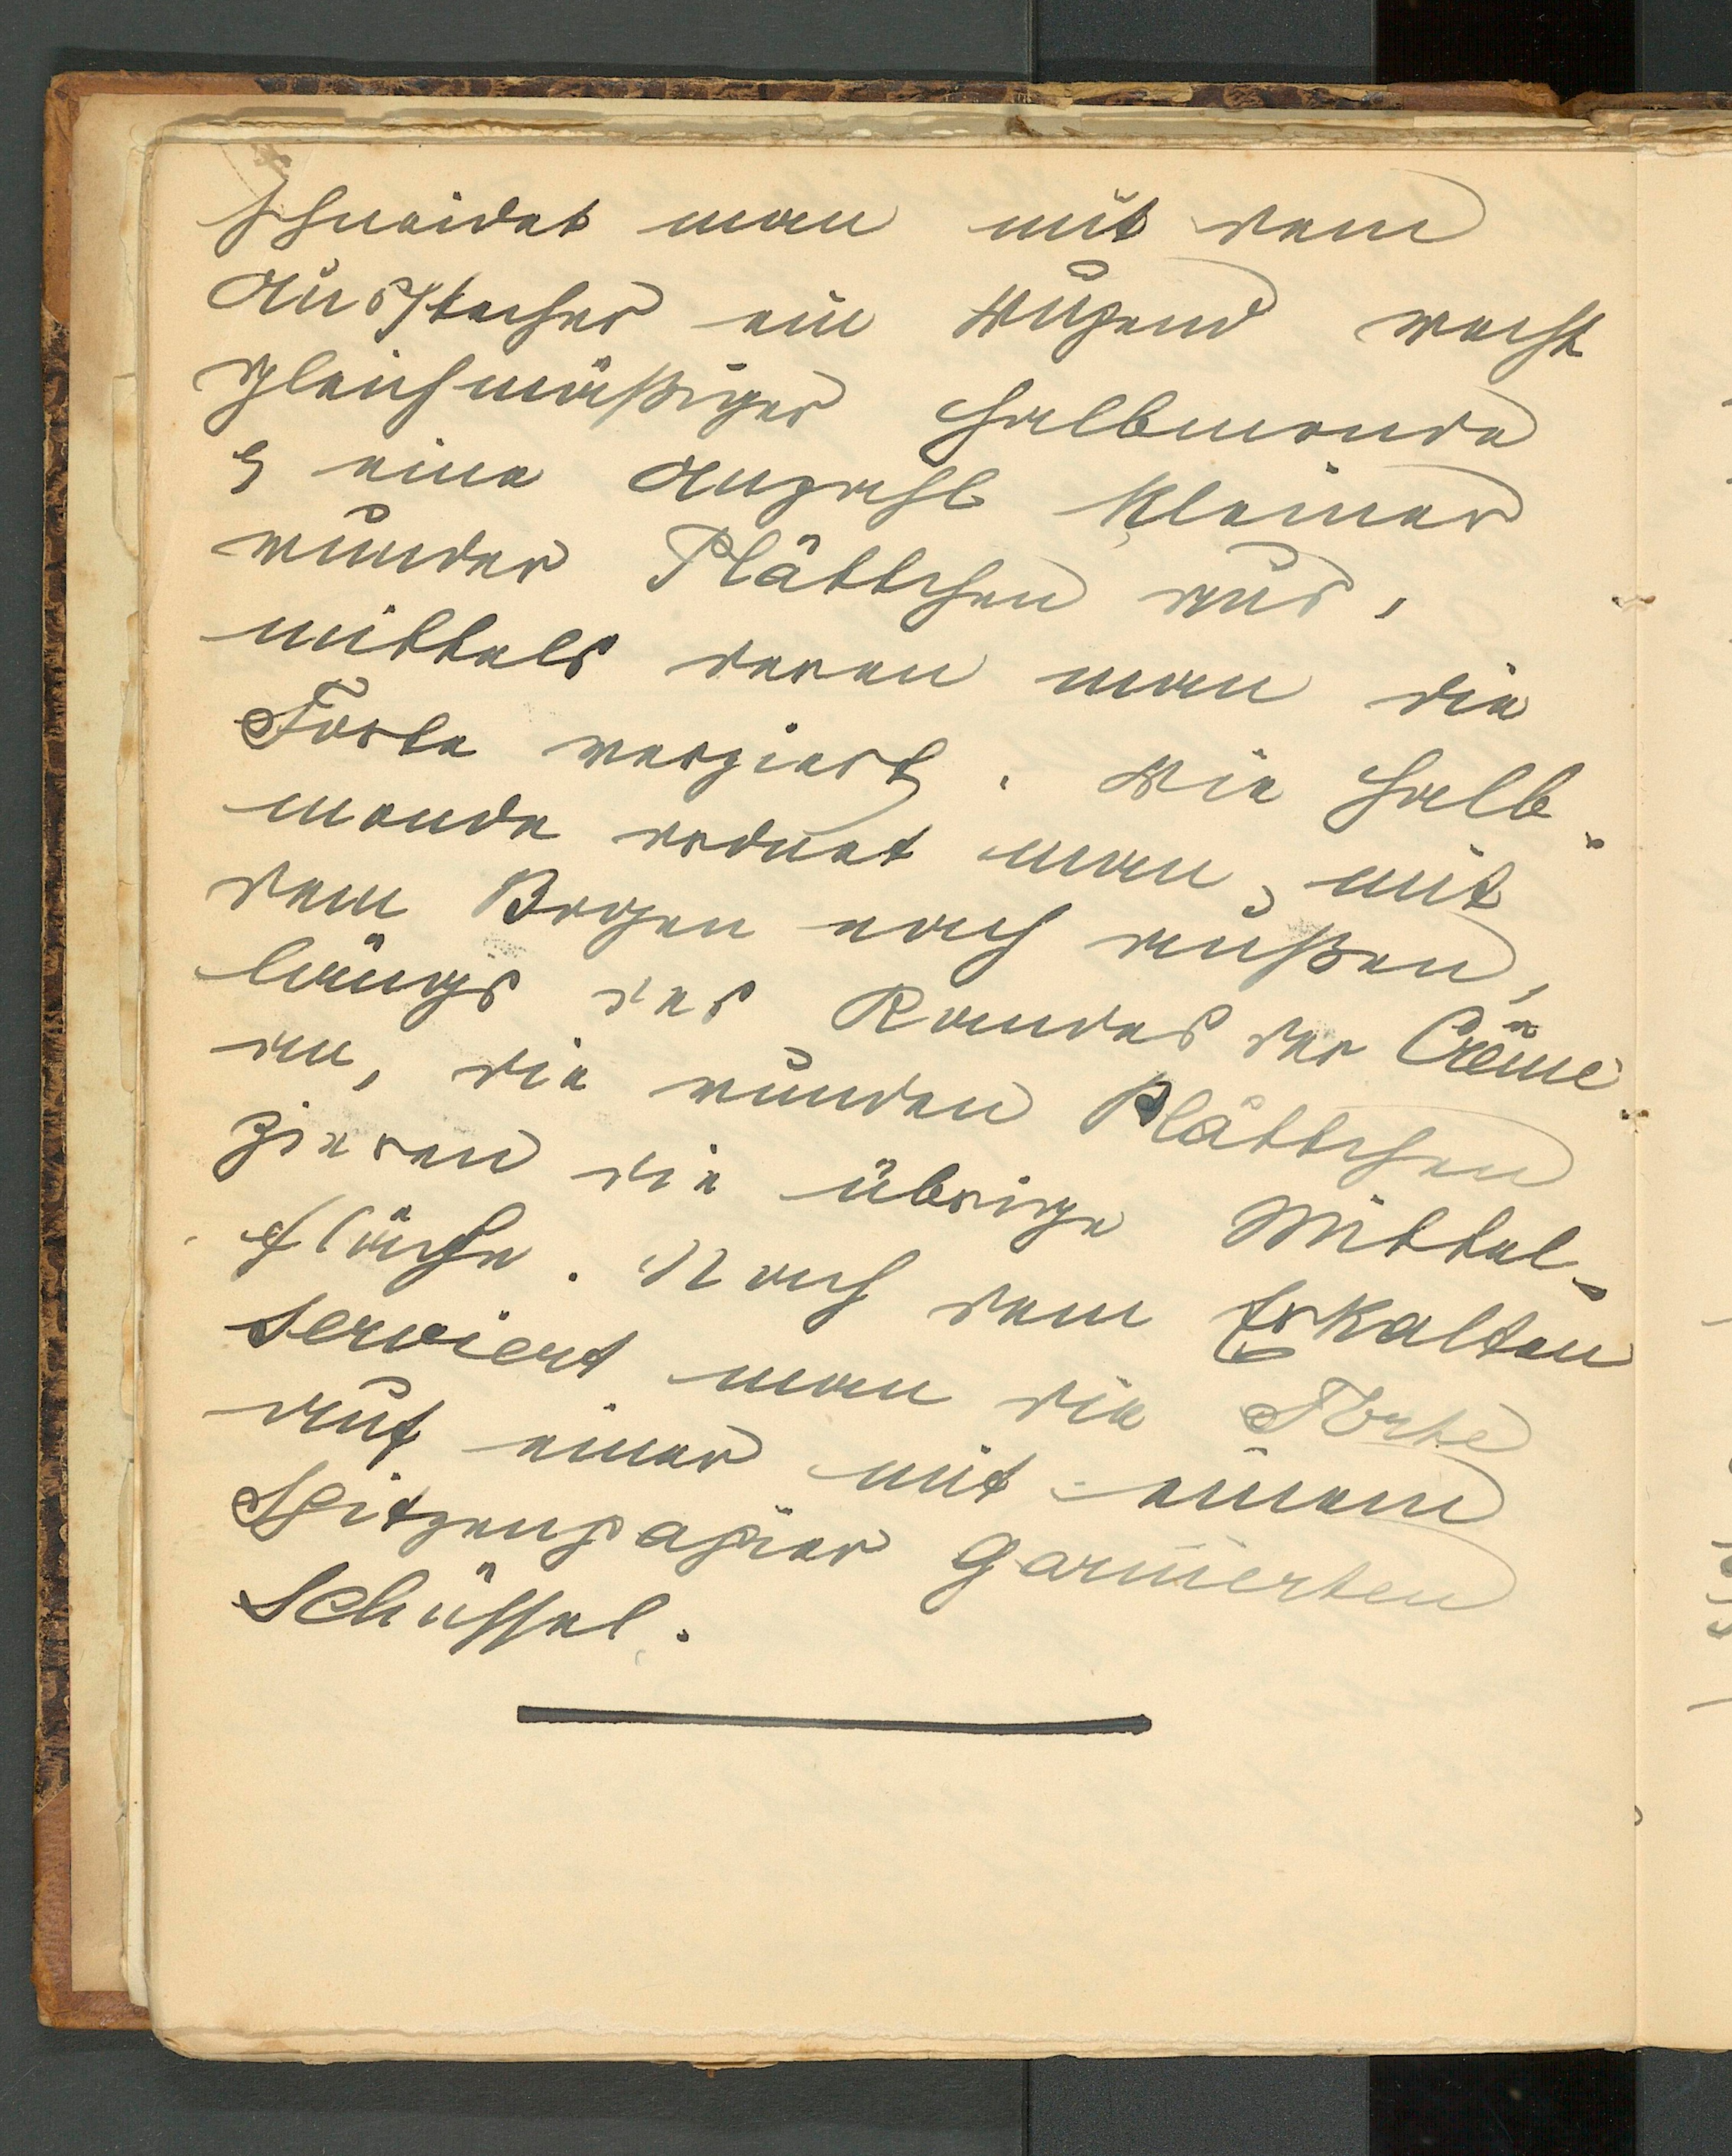 schneidet man mit dem
Ausstecher ein Dutzend recht
gleichmäßiger Halbmonde
& eine Anzahl kleiner
runder Plättchen aus,
mittels deren man die
Torte verziert. Die Halb-
monde ordnet man, mit
dem Bogen nach außen,
längs des Randes der Crême
an, die runden Plättchen
zieren die übrige Mittel-
fläche. Nach dem Erkalten
serviert man die Torte
auf einer mit einem
Spitzenpapier garnierten
Schüssel.